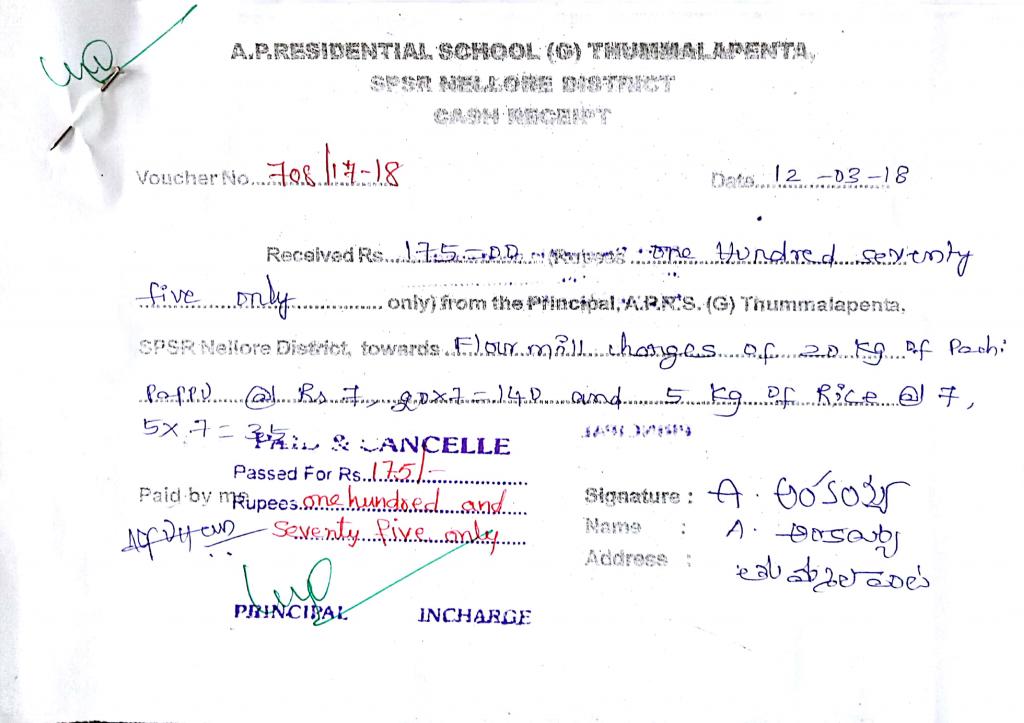 A.P.RESIDENTIAL SCHOOL (G) THUMMALAPENTA,
SPSR NELLORE DISTRICT
CASH RECEIPT
Voucher No. 708/17-18 Date. 12-03-18
Received Rs. 175=00 (Rupees one Hundred seventy
five only only) from the Principal, A.P.R.S. (G) Thummalapenta,
SPSR Nellore District, towards Flour mill charges of 20 Kg of Pachi
Pappu @ Rs 7, 20x7=140 and 5 Kg of Rice @ 7,
5x7=35
PAID & CANCELLE
Passed For Rs. 175/-
Paid by me Rupees one hundred and
seventy five only
Signature : A.
Name : A.
Address :
PRINCIPAL INCHARGE